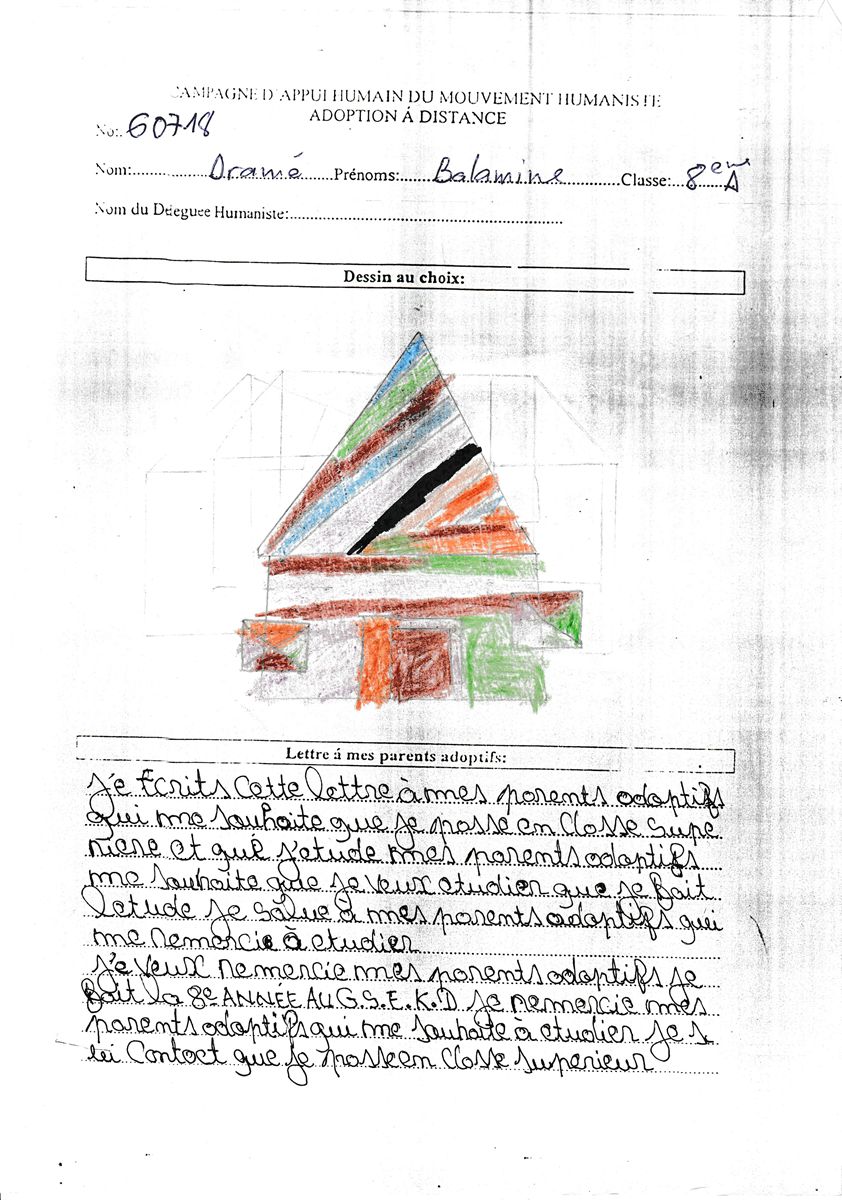 CAMPAGNE D'APPUI HUMAIN DU MOUVEMENT HUMANISTE
ADOPTION Á DISTANCE
No:. 60718
Nom:..................Dramé......Prénoms:......Balamine............Classe:...8eme A
Nom du Déleguée Humaniste:..........................................................
Dessin au choix:
Lettre á mes parents adoptifs:
je Ecrits cette lettre à mes parents adoptifs
qui me souhaite que je passe en classe supe
riere et que j'etude mes parents adoptifs
me souhaite que je veux etudier que je fait
letude je salue à mes parents adoptifs qui
me remercie à etudier
je veux remercie mes parents adoptifs je
fait la 8e ANNÉE AU G.S.E.K.D je remercie mes
parents adoptifs qui me souhaite à etudier je s
lui contact que je passe en classe superieur